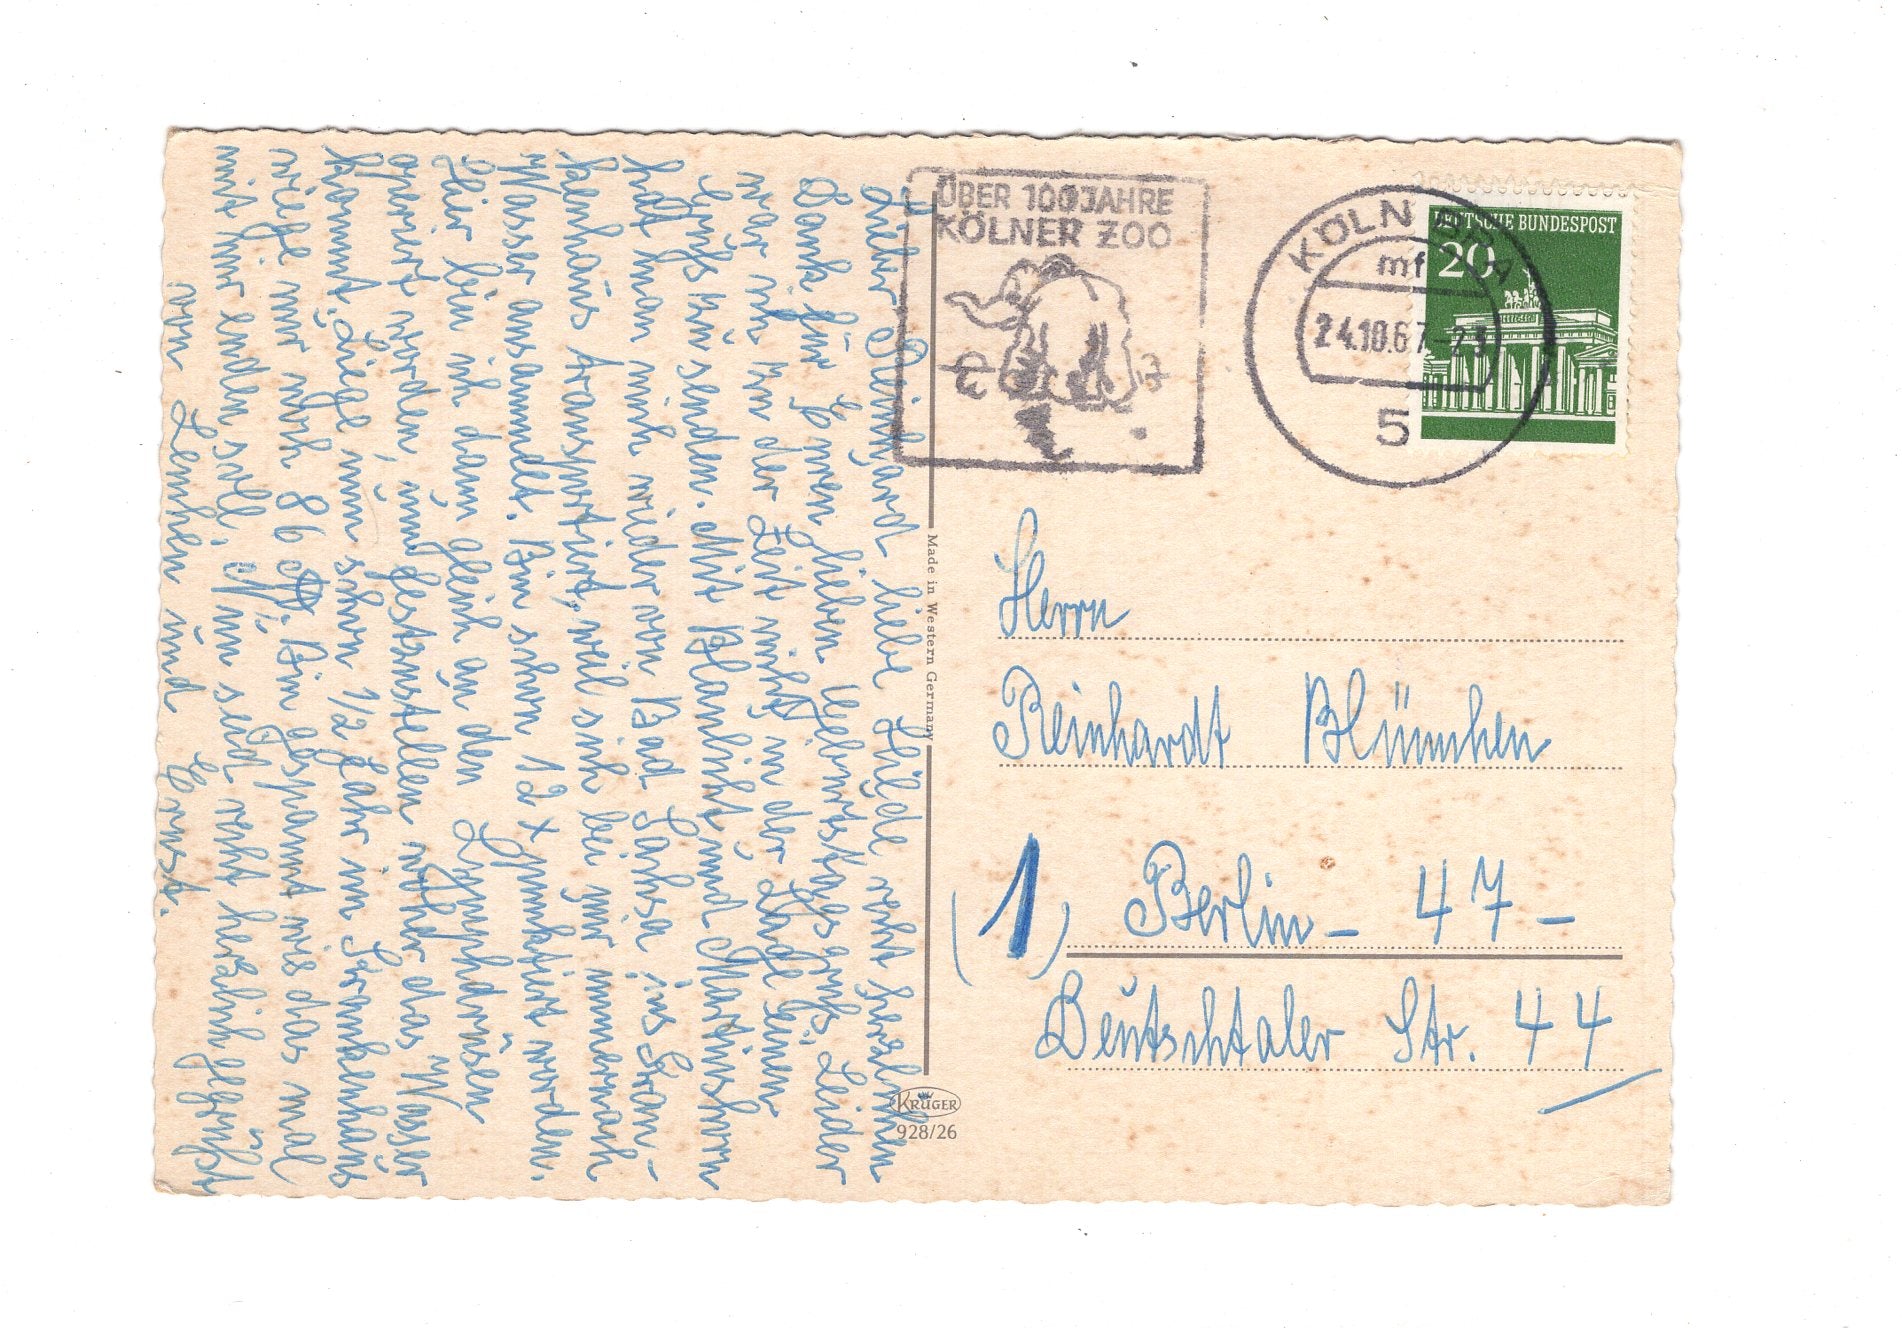 Lieber Reinhard liebe Hilde recht herzlichen
Dank für Euren lieben Geburtstagsgruß. Leider
war ich zu der Zeit nicht in der Lage einen
Gruß zu senden. Mit Blaulicht und Martinshorn
hat man mich wieder von Bad Salzig ins Kran-
kenhaus transportiert, weil sich bei mir immer noch
Wasser ansammelt. Bin schon 12 x punktiert worden.
Hier bin ich dann gleich an den Lymphdrüsen
operiert worden, um festzustellen woher das Wasser
kommt. Liege nun schon 1/2 Jahr im Krankenhaus
wiege nur noch 86 Pf. Bin gespannt wie das mal
mit mir enden soll. Nun seid recht herzlich gegrüßt
von Lenchen und Ernst.
ÜBER 100 JAHRE
KÖLNER ZOO
KÖLN
mf
24.10.67-23
5
DEUTSCHE BUNDESPOST
20
Made in Western Germany
KRÜGER
928/26
Herrn
Reinhardt Blümchen
(1) Berlin - 47 -
Deutschtaler Str. 44